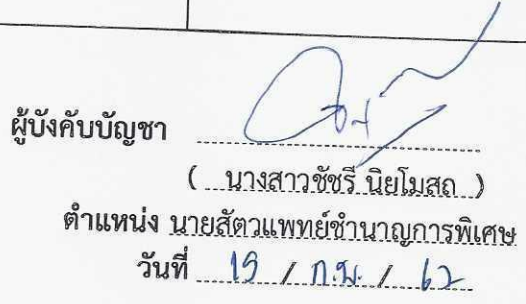 ผู้บังคับบัญชา
( นางสาวชัชรี นิยโมสถ )
ตำแหน่ง นายสัตวแพทย์ชำนาญการพิเศษ
วันที่ 19 / ก.พ. / 62